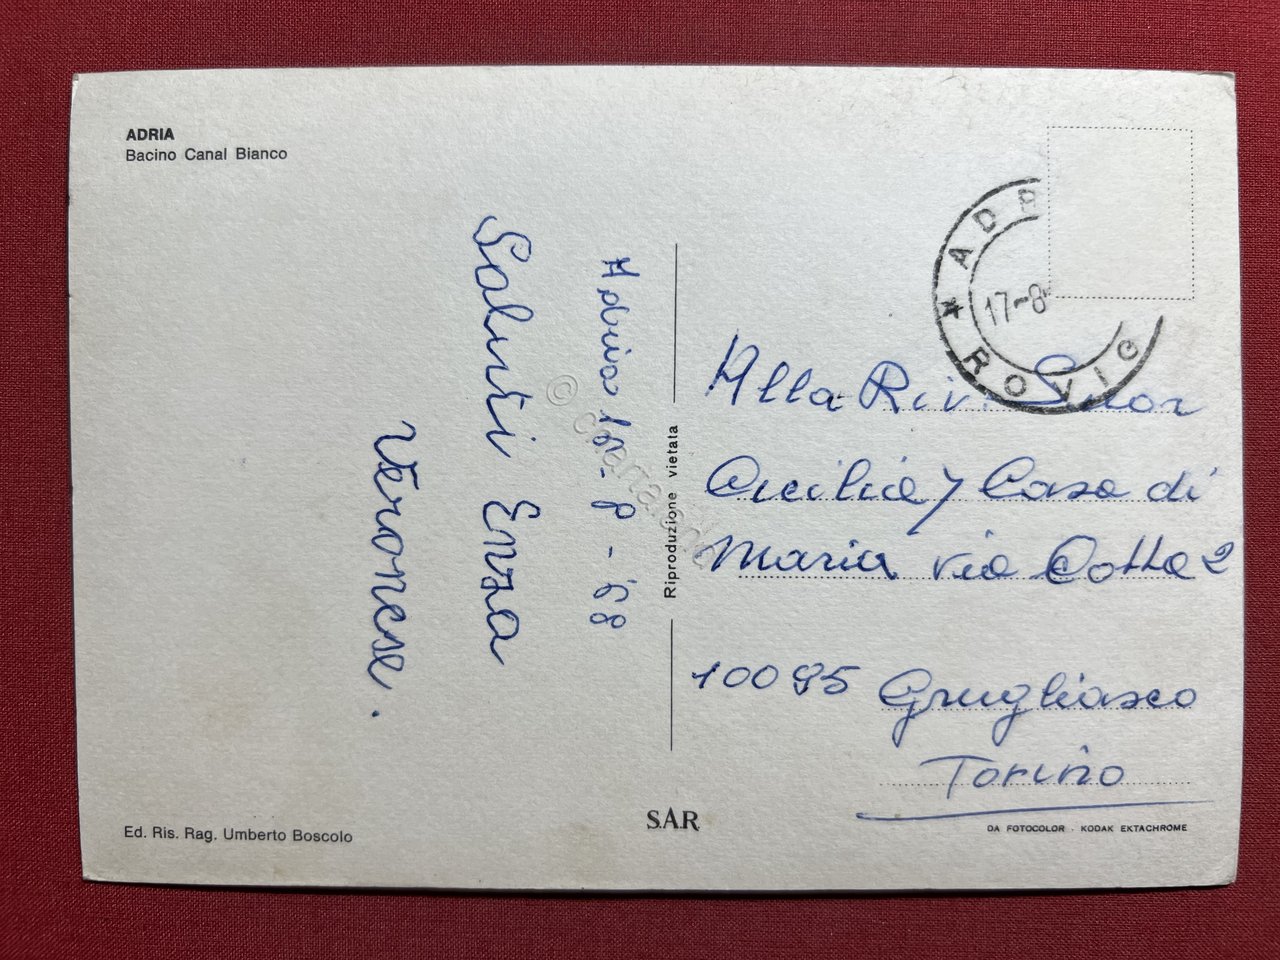 ADRIA
Bacino Canal Bianco
Adria
- 8 - '68
Saluti Enza
Veronese.
Riproduzione vietata
ADR
17-8
ROVIG
Alla Rev. Suor
Cecilia Casa di
Maria via Cotta 2
10095 Grugliasco
Torino
Ed. Ris. Rag. Umberto Boscolo
S.A.R.
DA FOTOCOLOR - KODAK EKTACHROME